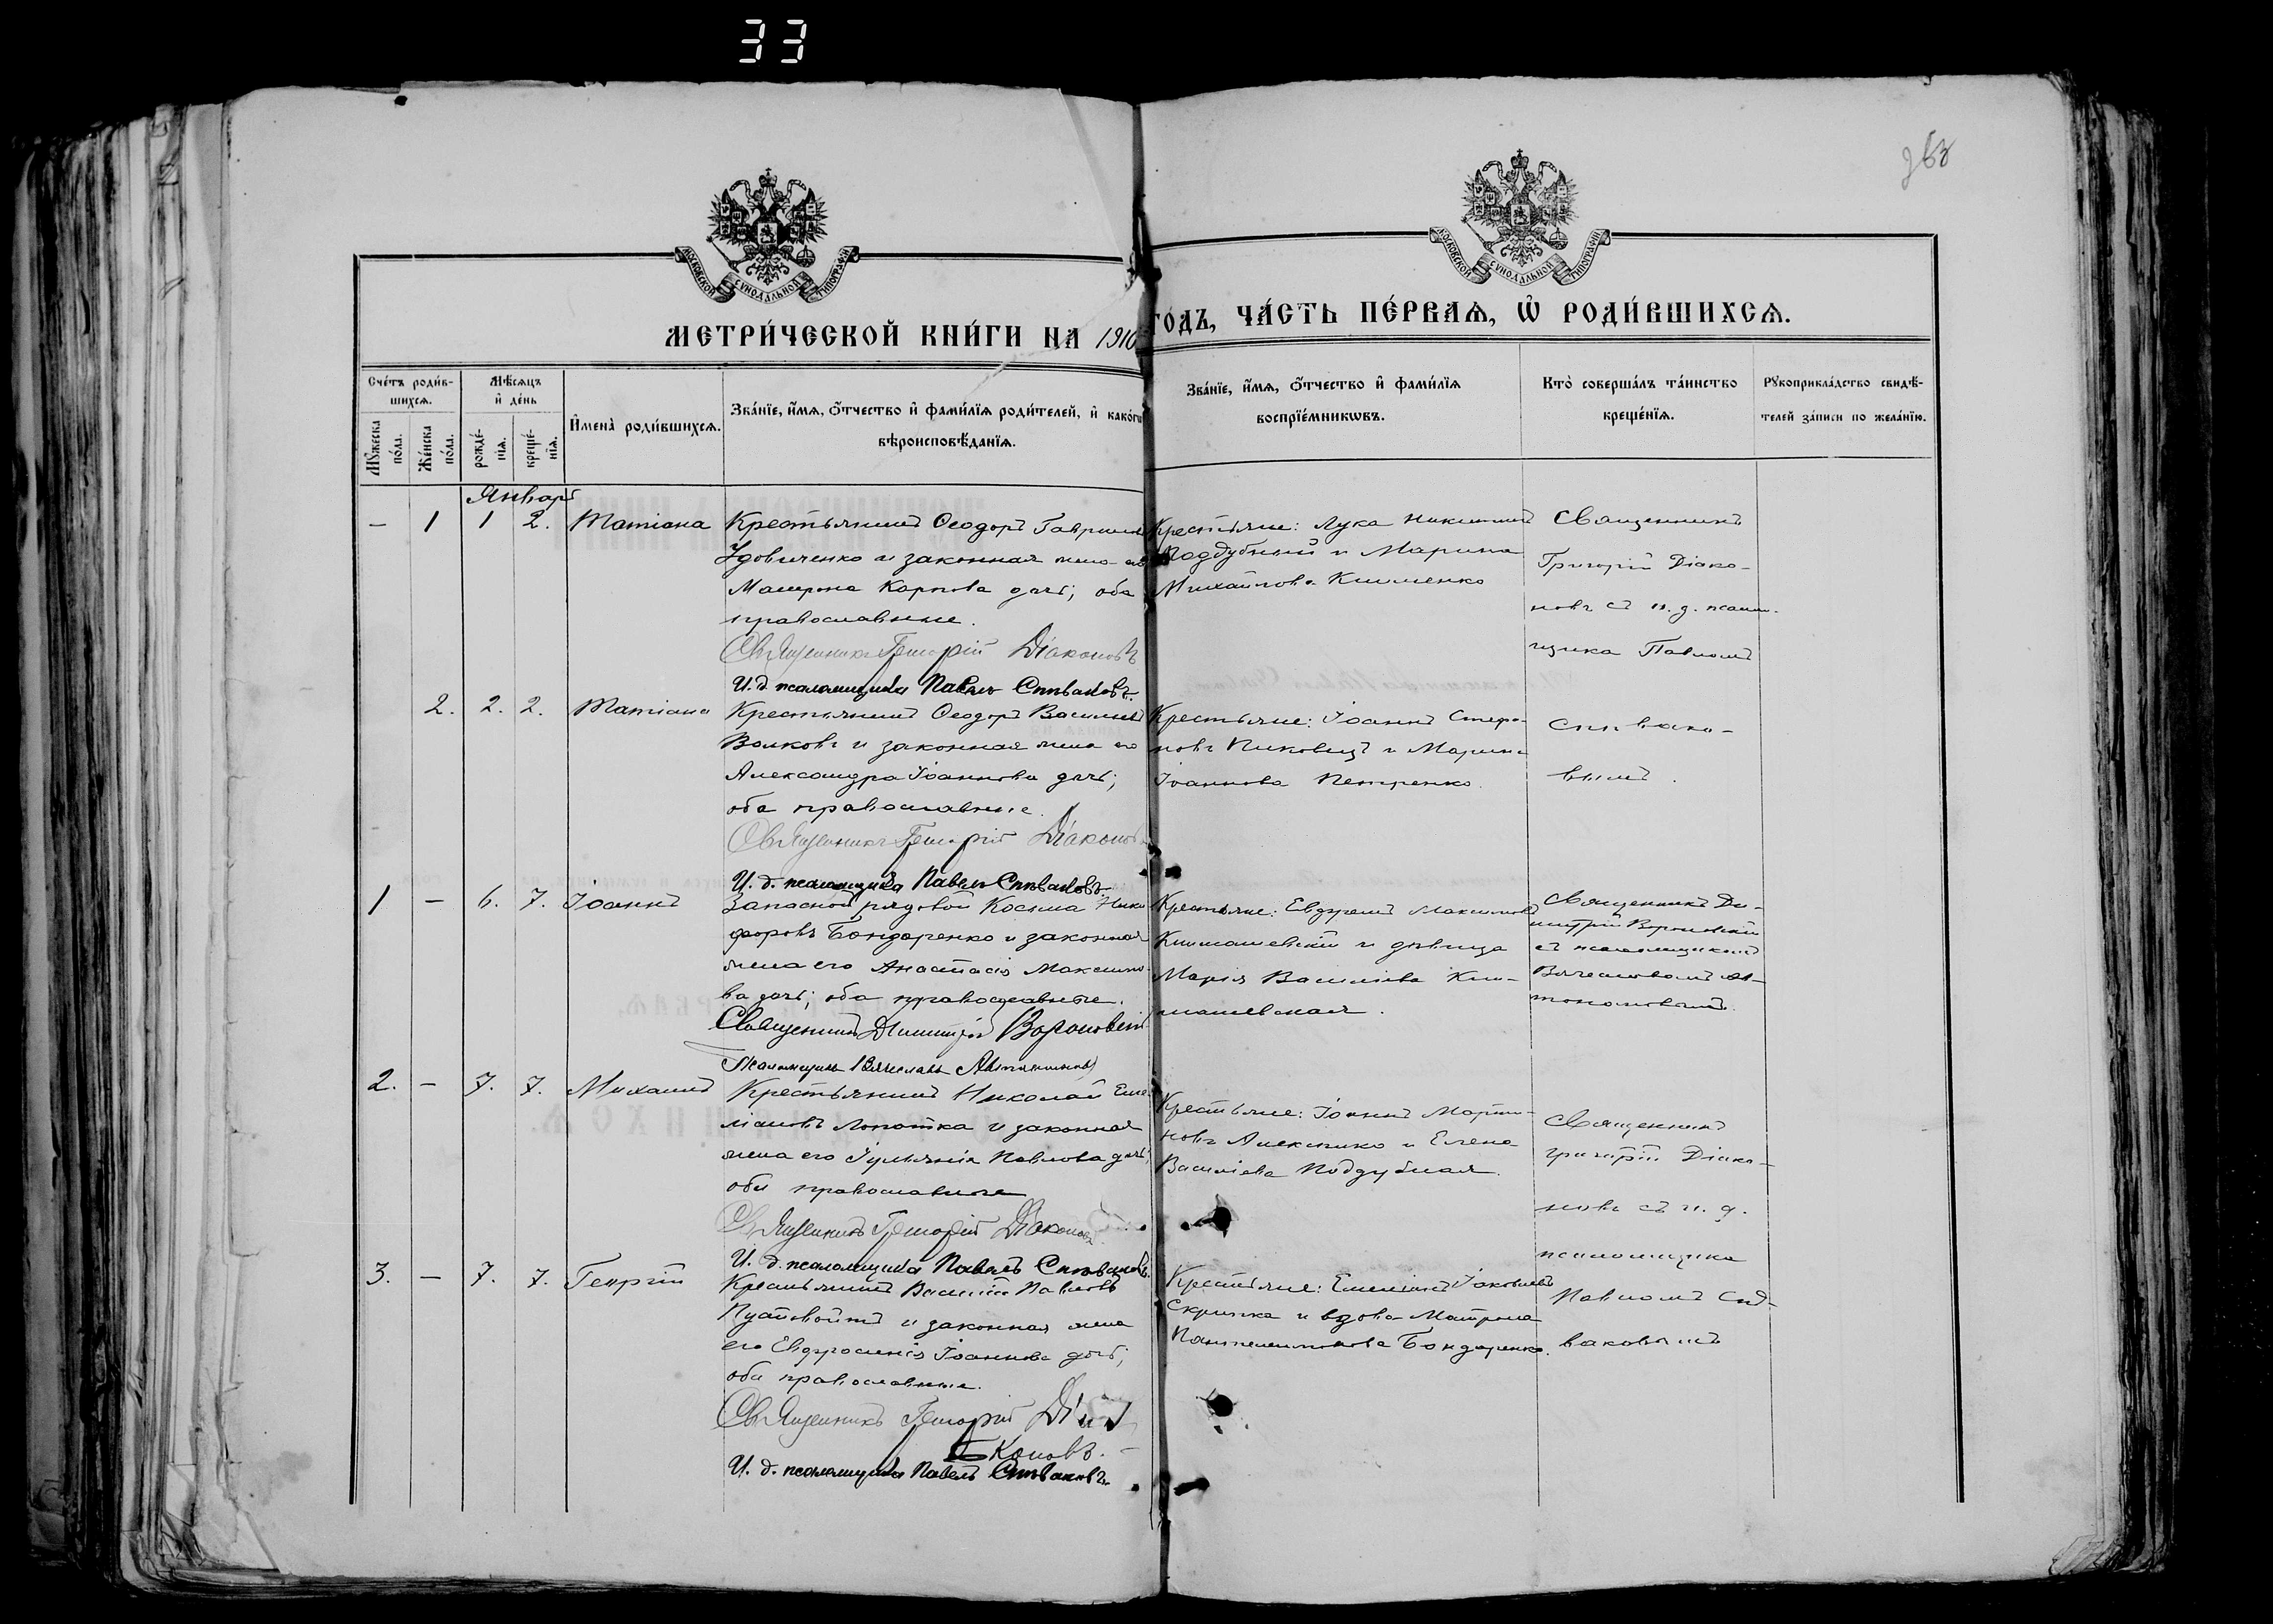 33
263
МОСКОВСКОЙ СѴНОДАЛЬНОЙ ТИПОГРАФІИ
МОСКОВСКОЙ СѴНОДАЛЬНОЙ ТИПОГРАФІИ
МЕТРИ́ЧЕСКОЙ КНИ́ГИ НА 1910 ГО́ДЪ, ЧА́СТЬ ПЕ́РВАѦ, Ѡ҆ РОДИ́ВШИХСѦ.
Сче́тъ роди́в-
шихсѧ.
Мꙋ́жеска по́ла.
Же́нска по́ла.
Мѣ́сѧцъ
и҆ де́нь
рожде́-
нїѧ.
креще́-
нїѧ.
И҆мена̀ роди́вшихсѧ.
Зва́нїе, и҆́мѧ, ѻ҆́тчество и҆ фами́лїѧ роди́телей, и҆ како́гѡ
вѣроисповѣ́данїѧ.
Зва́нїе, и҆́мѧ, ѻ҆́тчество и҆ фами́лїѧ
воспрїе́мникѡвъ.
Кто̀ соверша́лъ та́инство
креще́нїѧ.
Рꙋкоприкла́дство свидѣ́-
телей за́писи по жела́нїю.
Январь
— 1 1 2. Татіана
Крестьянинъ Ѳеодоръ Гавриловъ
Удовиченко и законная жена его
Матрона Карпова дочь; оба
православные.
Священникъ Григорій Діаконовъ
И. д. псаломщика Павелъ Спѣваковъ.
Крестьяне: Лука Никитинъ
Поддубный и Марина
Михайлова Клименко
Священникъ
Григорій Діако-
новъ съ и. д. псалом-
щика Павломъ
2. 2. 2. Татіана
Крестьянинъ Ѳеодоръ Васильевъ
Волковъ и законная жена его
Александра Іоаннова дочь;
оба православные.
Священникъ Григорій Діаконовъ
И. д. псаломщика Павелъ Спѣваковъ.
Крестьяне: Іоаннъ Стефа-
новъ и Марина
Іоаннова Петренко.
Спѣвако-
вымъ.
1 — 6. 7. Іоаннъ
Запасной рядовой Косьма Ники
форовъ Бондаренко и законная
жена его Анастасія Максимо-
ва дочь; оба православные.
Священникъ Димитрій Вороновскій
Псаломщикъ Вячеславъ Автономовъ
Крестьяне: Евфремъ Максимовъ
Климашевскій и дѣвица
Марія Васильева Кли-
машевская.
Священникъ Ди-
митрій Вороновскій
съ псаломщикомъ
Вячеславомъ Ав-
тономовымъ.
2. — 7. 7. Михаилъ
Крестьянинъ Николай Еме-
ліановъ Лопатка и законная
жена его Іуліанія Павлова дочь;
оба православные
Священникъ Григорій Діаконовъ
И. д. псаломщика Павелъ Спѣваковъ.
Крестьяне: Іоаннъ Марти-
новъ и Елена
Васильева Поддубная.
Священникъ
Григорій Діако-
новъ съ и. д.
псаломщика
Павломъ Спѣ-
ваковымъ
3. — 7. 7. Георгій
Крестьянинъ Василій Павловъ
Пустовойтъ и законная жена
его Евфросинія Іоаннова дочь;
оба православные.
Священникъ Григорій Діа
коновъ.
И. д. псаломщика Павелъ Спѣваковъ.
Крестьяне: Емеліанъ Іаковлевъ
Скрипка и вдова Матрона
Пантелеимонова Бондаренко.